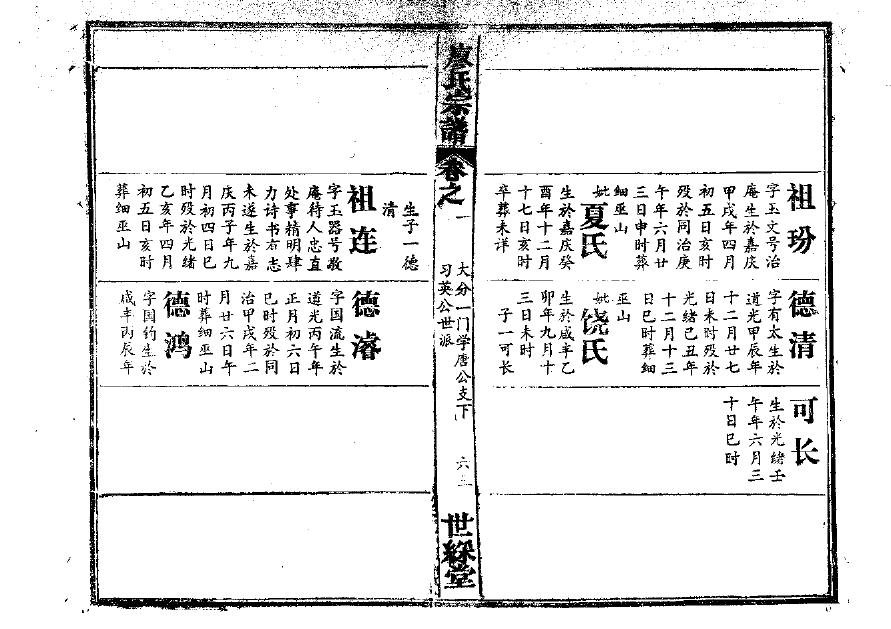 祖玢
字玉文号治
庵生於嘉庆
甲戌年四月
初五日亥时
殁於同治庚
午年六月廿
三日申时葬
细巫山
妣夏氏
生於嘉庆癸
酉年十二月
十七日亥时
卒葬未详
德清
字有太生於
道光甲辰年
十二月廿七
日未时殁於
光绪己丑年
十二月十三
日巳时葬细
巫山
妣饶氏
生於咸丰乙
卯年九月十
三日未时
子一可长
可长
生於光绪壬
午年六月三
十日巳时
敖氏宗谱
卷之一
大分一门学唐公支下
习英公世派
六三
世綵堂
生子一德
清
祖连
字玉器号敬
庵待人忠直
处事精明肆
力诗书有志
未遂生於嘉
庆丙子年九
月初四日巳
时殁於光绪
乙亥年四月
初五日亥时
葬细巫山
德濬
字国流生於
道光丙午年
正月初六日
巳时殁於同
治甲戌年二
月廿六日午
时葬细巫山
德鸿
字国钧生於
咸丰丙辰年